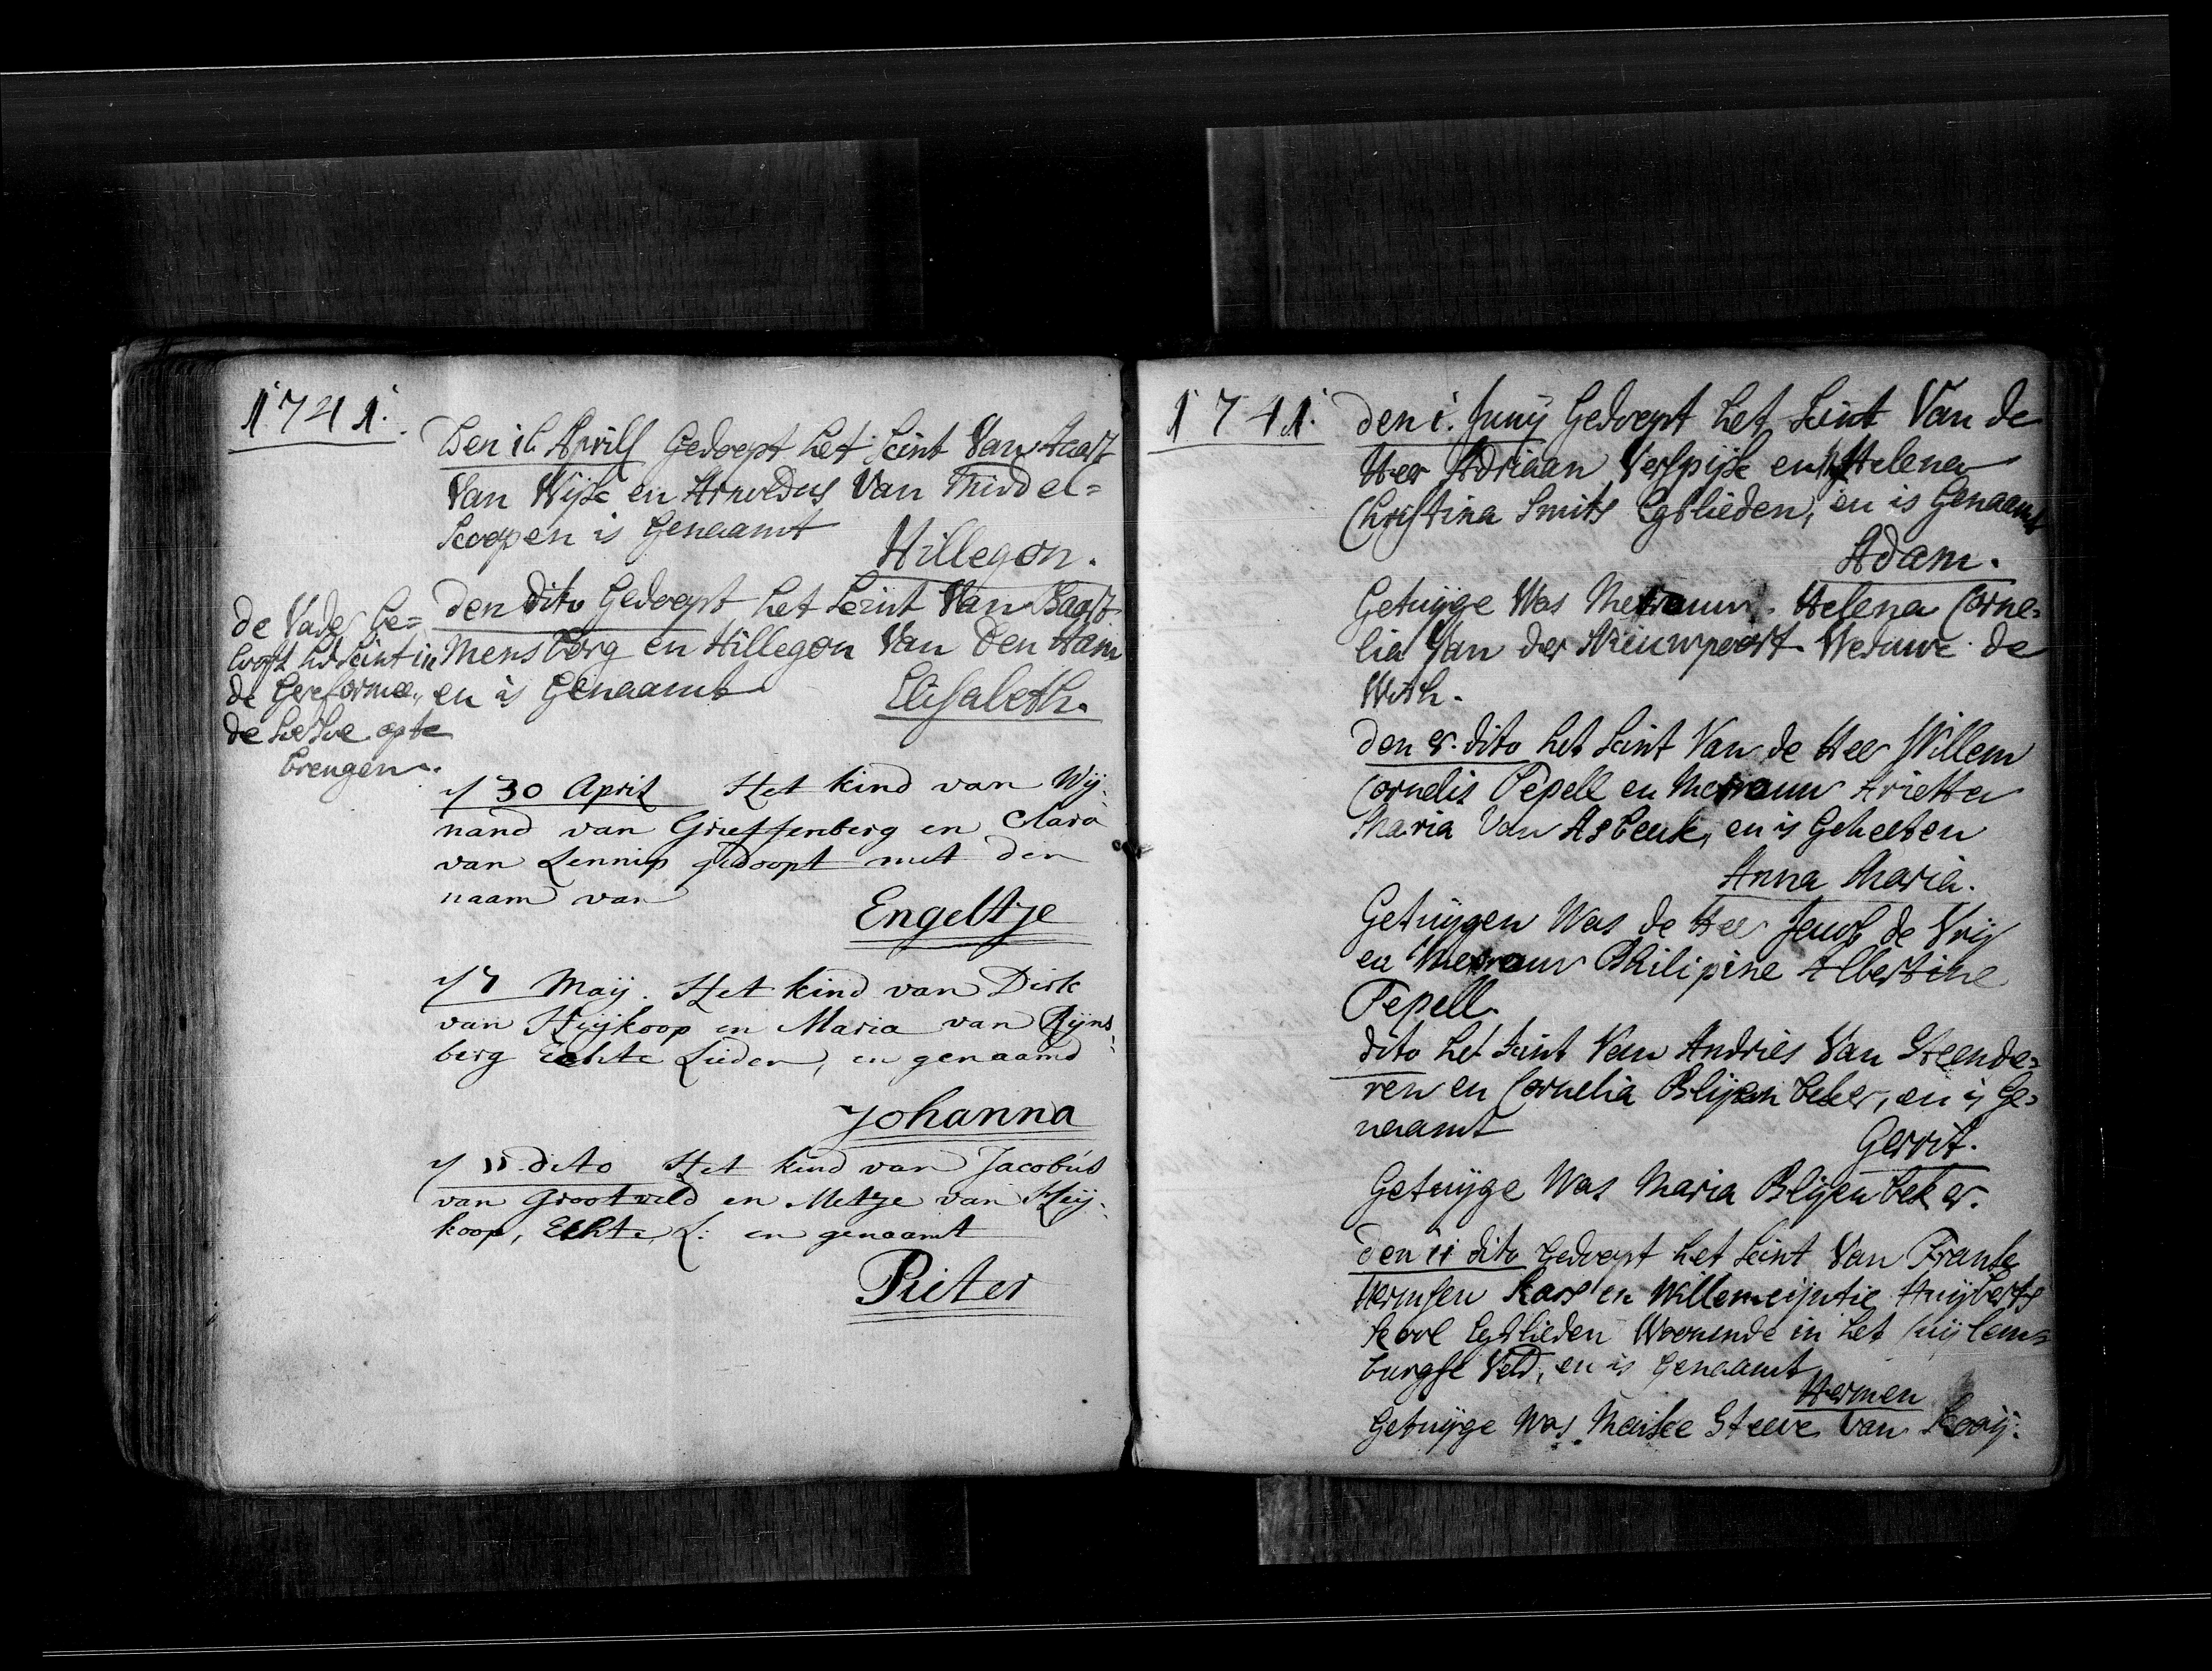 1741.
Den 16 Aprill Gedoopt het kint Van Aart
Van Wijk en Arnoldus Van Middel=
koop en is Genaamt
Hillegon.
den dito Gedoopt het keint Van Baast
Mensborg en Hillegon Van Den Ham
en is Genaamt
Elisabeth.
de Vader be=
looft het keint in
de Gereforme,,
de kerke op te
brengen.
30 April Het kind van Wij:
nand van Grieffenberg en Clara
van Lennip gedoopt met den
naam van
Engeltje
7 Maij. Het kind van Dirk
van Huijkoop en Maria van Rijns:
berg Echte Lieden, en genaamd
Johanna
11 dito Het kind van Jacobus
van Grootveld en Metje van Huij:
koop, Echte L: en genaamt
Pieter
1741.
den 1. Junij Gedoopt het keint Van de
Heer Adriaan Verspijk en Helena
Christina Smits Egtlieden, en is Genaamt
Adam.
Getuijge Was Mevrouw. Helena Corne=
lia Van der Nieuwpoort Weduwe de
With.
den 4. dito het keint Van de Heer Willem
Cornelis Pepell en Mevrouw Arietta
Maria Van Asbeuk, en is Geheeten
Anna Maria.
Getuijgen Was de Heer Jacob de Vrij
en Mevrouw Philipine Albertine
Pepell.
dito het keint Van Andries Van Steende=
ren en Cornelia Blijenbeker, en is Ge=
naamt
Gerrit.
Getuijge Was Maria Blijenbeker.
den 11 dito Gedoopt het keint Van Franse
Hermsen Kars en Willemeijntie Huijberts
Kool Egtlieden Woonende in het Cuijlem=
burgse Veld, en is Genaamt
Hermen
Getuijge Was Maeike Steeve Van Kooij.